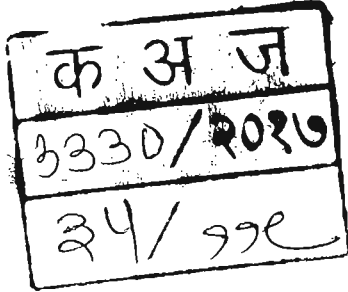 क अ ज
३३३०/२०१७
३५/११९